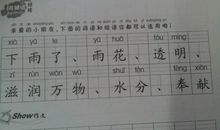 亲爱的小朋友，下面的词语和短语你都可以选用哟！
xià yǔ le yǔ huā tòu míng
下雨了、雨花、透明、
zī rùn wàn wù shuǐ fèn fèng xiàn
滋润万物、水分、奉献
Show